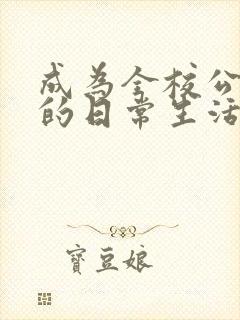 成為全校公
的日常生活
寶豆娘